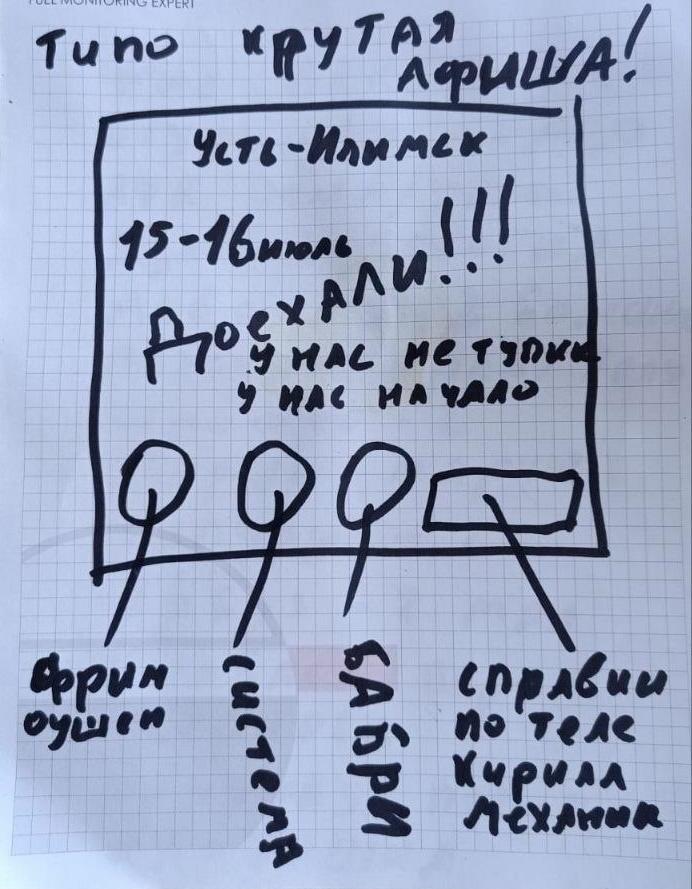 FULL MONITORING EXPERT
Типо крутая
афиша!
Усть-Илимск
15-16 июль
Доехали!!!
у нас не тупик
у нас начало
Фрин
оушен
система
БАБРИ
справки
по теле
Кирилл
механик